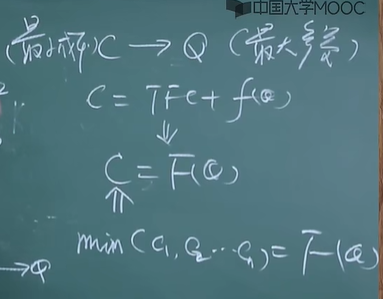 中国大学MOOC
(最小成本) C → Q (最大产量)
C = TFC + f(Q)
⇓
C = F(Q)
⇑
min (C₁, C₂ ⋯ Cₙ) = F(Q)
→ Q